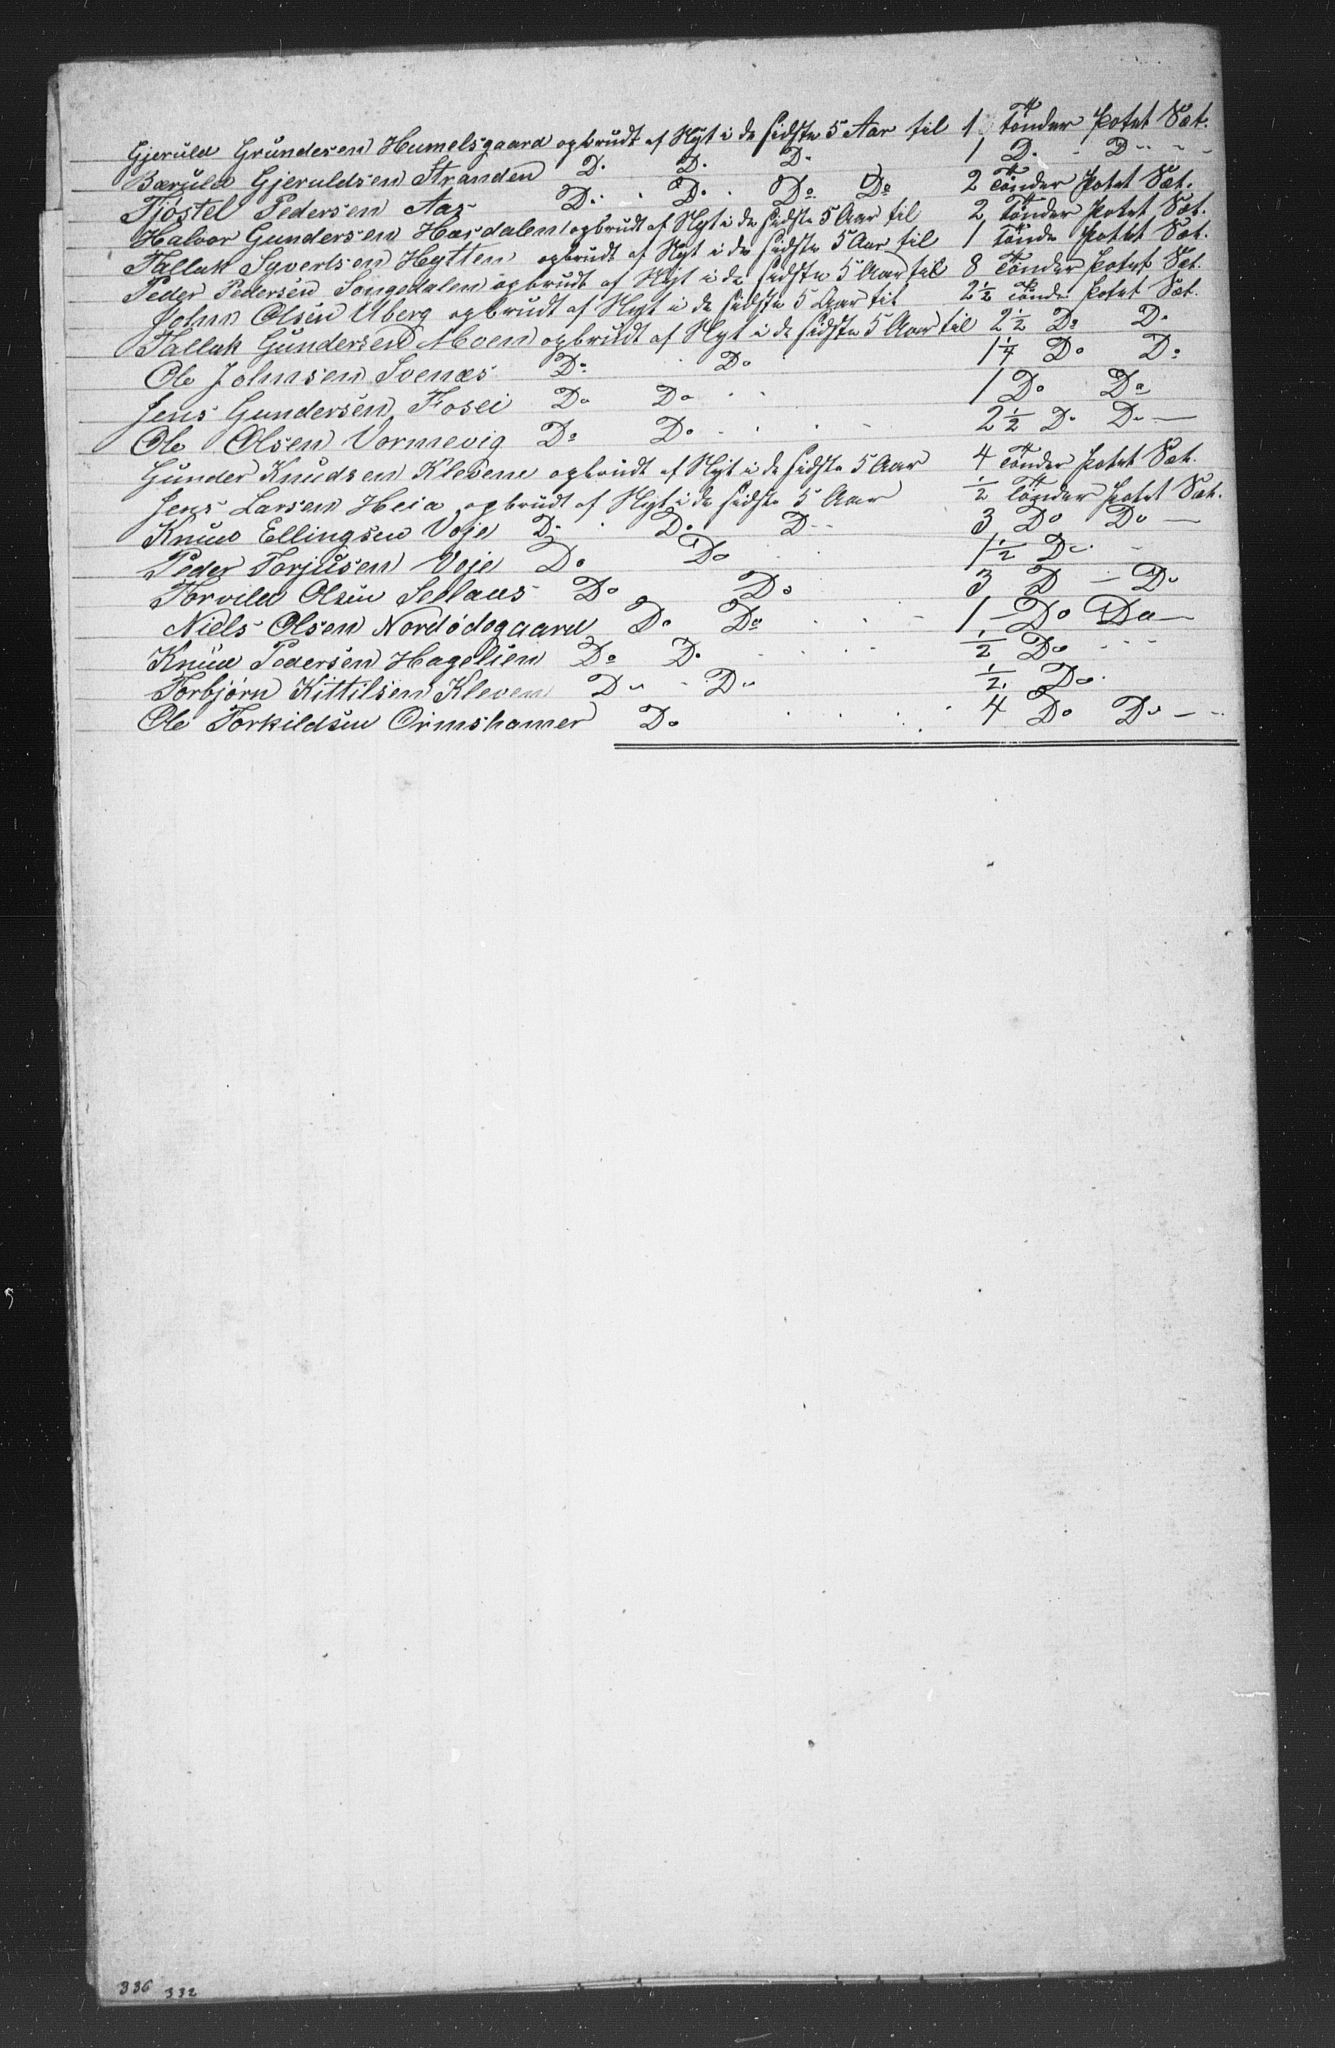 Gjeruld Grundesen Humelsgaard opbrudt af Nyt i de sidste 5 Aar til 1 Tönder Potet Sæt.
Bæruld Gjeruldsen Stranden D. D. D. 1 D. D.
Tjöstel Pedersen Aas D. D. Do Do 2 Tönder Potet Sæt.
Halvor Gundersen Hasdalen opbrudt af Nyt i de sidste 5 Aar til 2 Tönder Potet Sæt.
Tallak Syvertsen Hytten opbrudt af Nyt i de sidste 5 Aar til 1 Tönde Potet Sæt.
Peder Pedersen Songedalen opbrudt af Nyt i de sidste 5 Aar til 8 Tönder Potet Sæt.
John Olsen Uberg opbrudt af Nyt i de sidste 5 Aar til 2½ Tönde Potet Sæt.
Tallak Gundersen Moen opbrudt af Nyt i de sidste 5 Aar til 2½ Do D.
Ole Johnsen Svenæs Do Do 1¼ Do Do
Jens Gundersen Fosei Do Do 1 Do Do
Ole Olsen Vormevig Do Do 2½ Do Do
Gunder Knudsen Klevene opbrudt af Nyt i de sidste 5 Aar 4 Tönder Potet Sæt.
Jens Larsen Heia opbrudt af Nyt i de sidste 5 Aar ½ Tönder Potet Sæt.
Knud Ellingsen Voje D. D. D 3 Do Do
Peder Torjusen Voje Do Do 1½ Do
Torvild Olsen Selaas Do Do 3 D Do
Niels Olsen Nordödegaard Do Do 1 Do Do
Knud Pedersen Hagelien Do D. ½ Do
Torbjørn Kittilsen Kleven Do Do ½ Do
Ole Torkildsen Ormshamer Do 4 Do Do
336 332